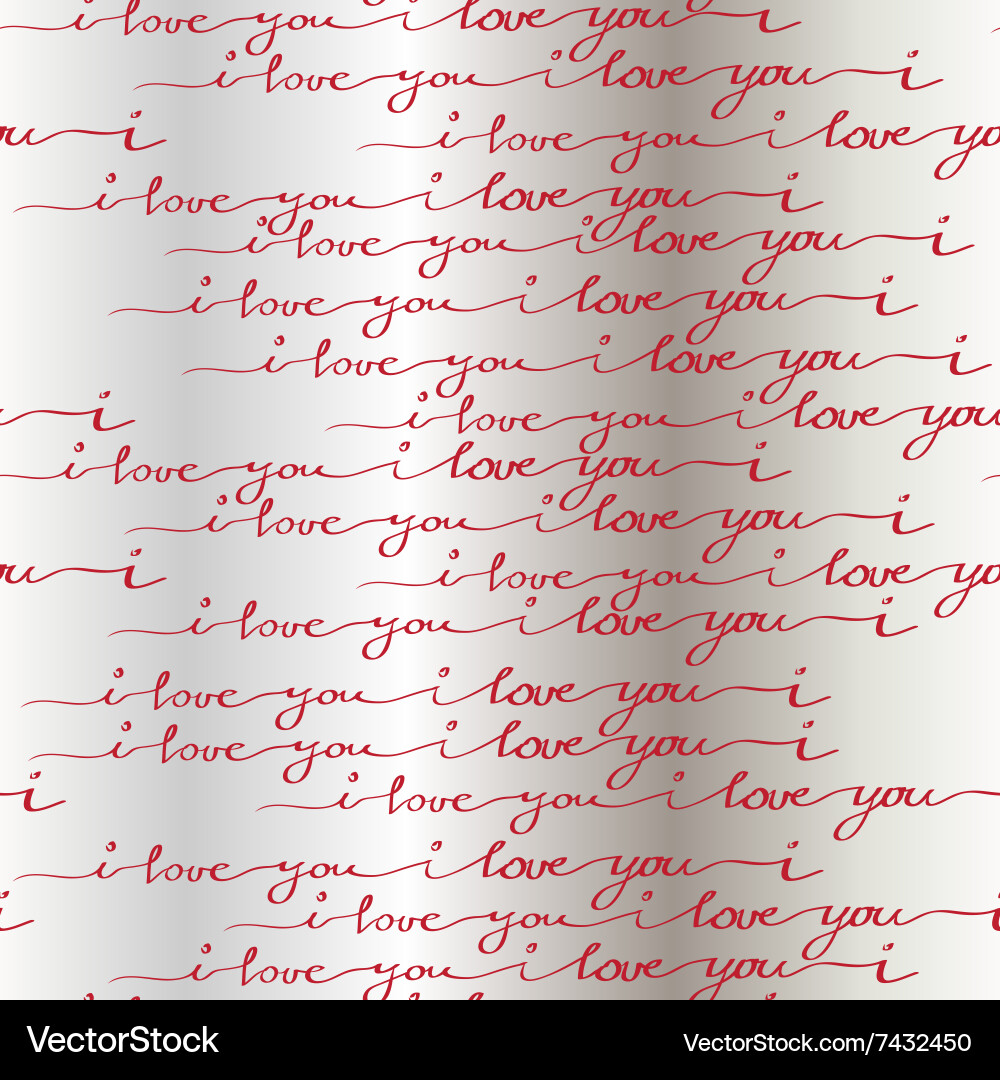 i love you i love you i
i love you i love you i
ou i i love you i love yo
i love you i love you i
i love you i love you i
i love you i love you i
i love you i love you i
i i love you i love you
i love you i love you i
i love you i love you i
ou i i love you i love yo
i love you i love you i
i love you i love you i
i love you i love you i
i i love you i love you
i love you i love you i
i i love you i love you i
i love you i love you i
VectorStock VectorStock.com/7432450